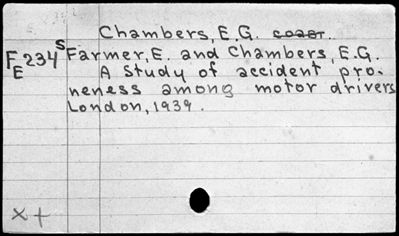 Chambers, E.G. coaut.
FE234S Farmer, E. and Chambers, E.G.
A study of accident pro-
neness among motor drivers
London, 1939.
x+